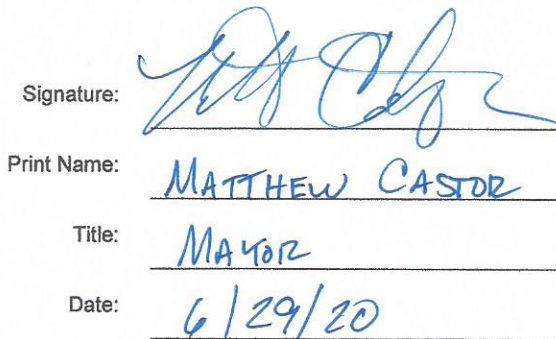 Signature:
Print Name: MATTHEW CASTOR
Title: MAYOR
Date: 6/29/20